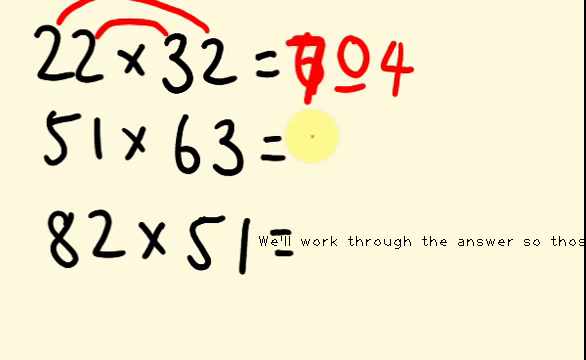 22 × 32 = 704
51 × 63 =
82 × 51 =
We'll work through the answer so thos